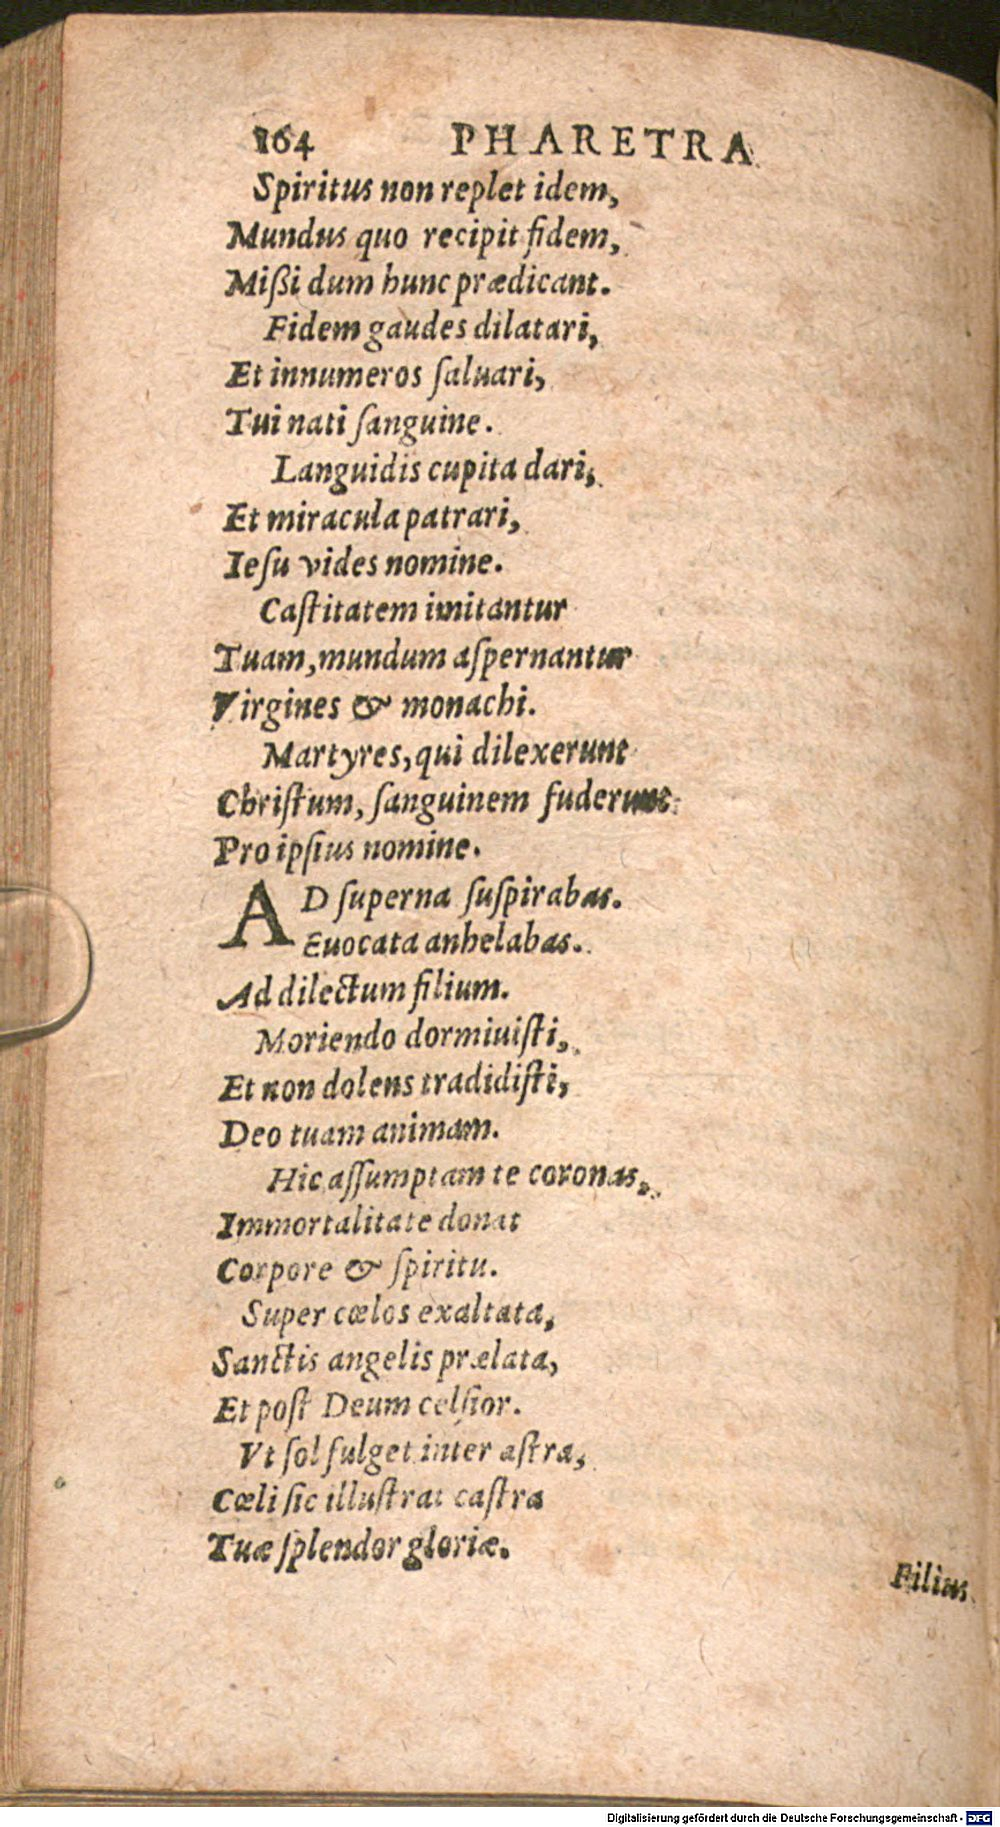 164 PHARETRA
Spiritus non replet idem,
Mundus quo recipit fidem,
Mißi dum hunc prædicant.
Fidem gaudes dilatari,
Et innumeros ſaluari,
Tui nati ſanguine.
Languidis cupita dari,
Et miracula patrari,
Ieſu vides nomine.
Caſtitatem imitantur
Tuam, mundum aſpernantur
Virgines & monachi.
Martyres, qui dilexerunt
Chriſtum, ſanguinem fuderunt
Pro ipſius nomine.
AD ſuperna ſuſpirabas.
Euocata anhelabas.
Ad dilectum filium.
Moriendo dormiuiſti,
Et non dolens tradidiſti,
Deo tuam animam.
Hic aſſumptam te coronas,
Immortalitate donat
Corpore & ſpiritu.
Super cœlos exaltata,
Sanctis angelis prælata,
Et poſt Deum celſior.
Vt ſol fulget inter aſtra,
Cœli ſic illuſtrat caſtra
Tuæ ſplendor gloriæ.
Filius
Digitalisierung gefördert durch die Deutsche Forschungsgemeinschaft - DFG